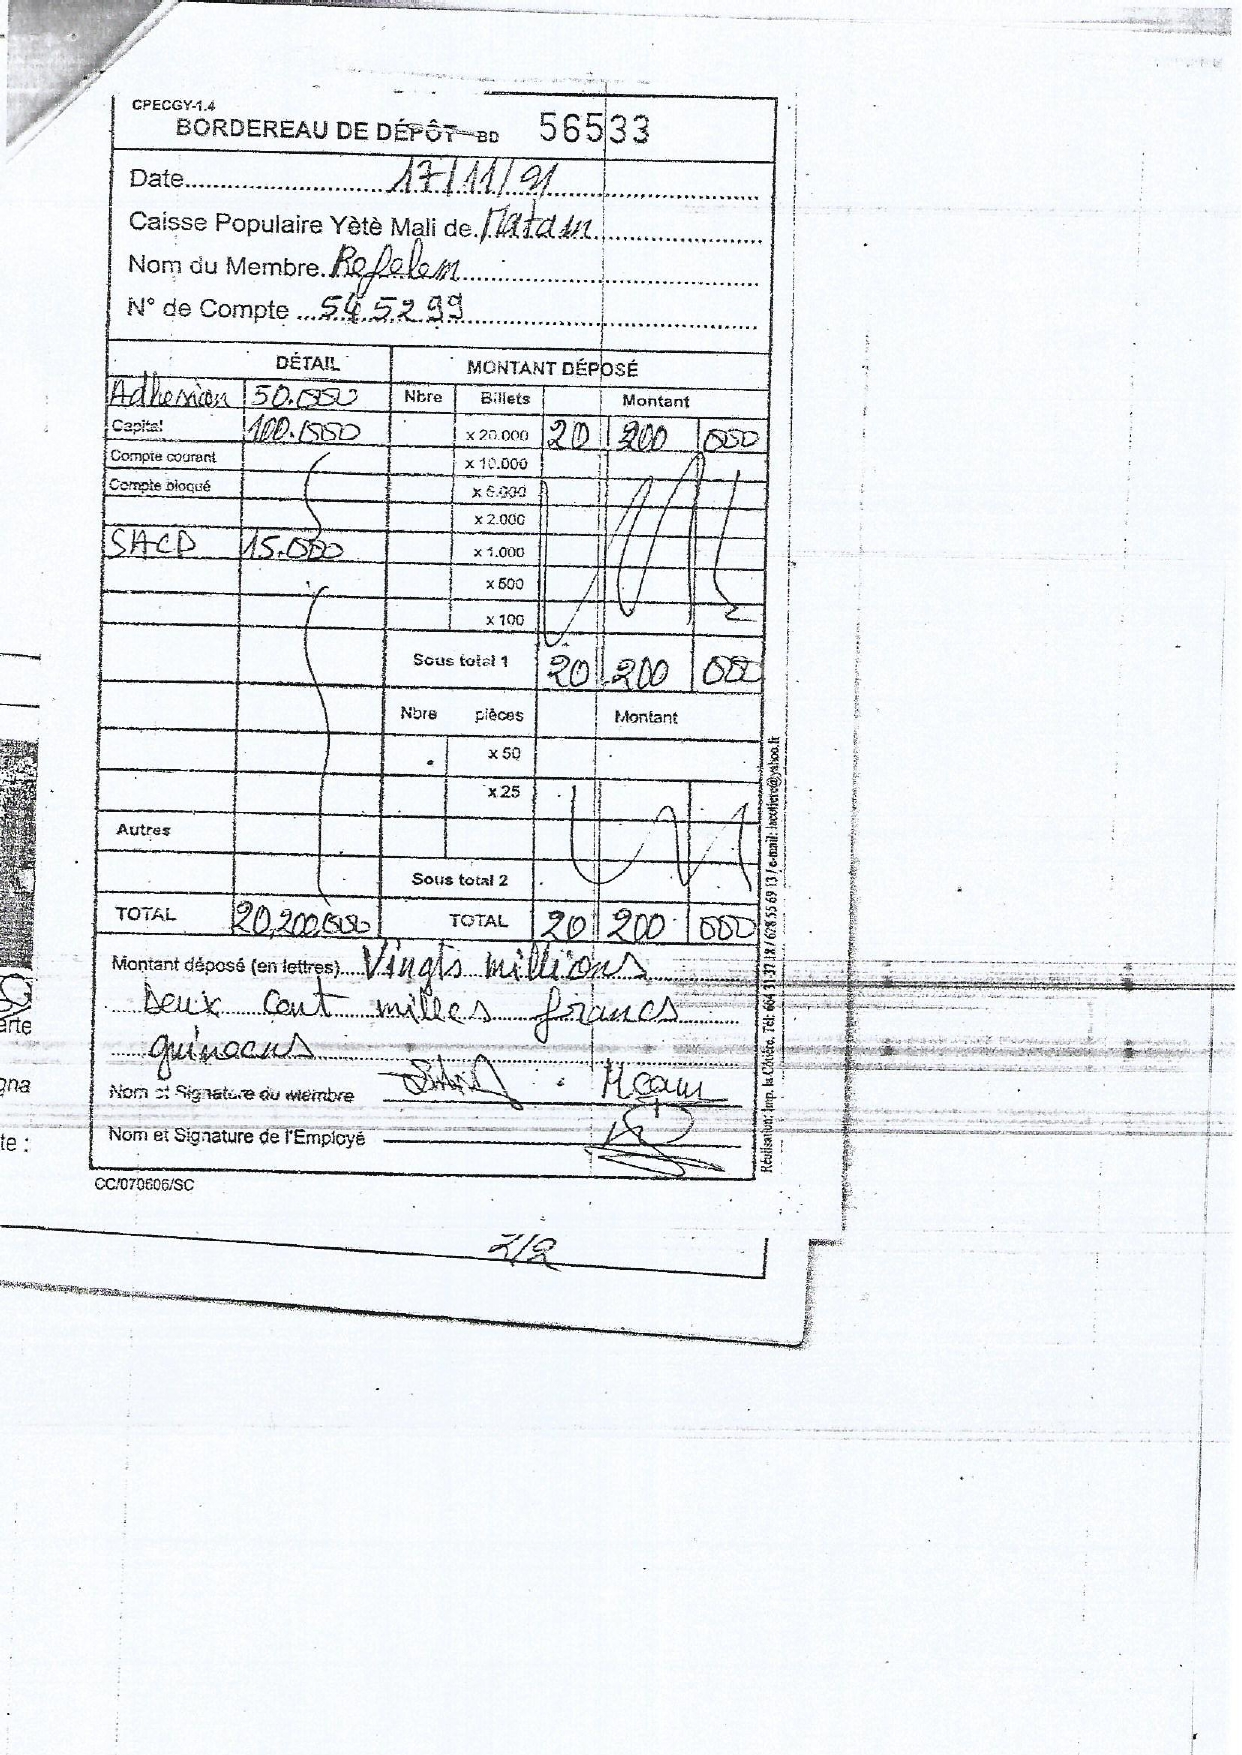 CPECGY-1.4
BORDEREAU DE DÉPÔT BD 56533
Date 17/11/91
Caisse Populaire Yètè Mali de Matam
Nom du Membre Refelem
N° de Compte 545299
DÉTAIL MONTANT DÉPOSÉ
Adhesion 50.000 Nbre Billets Montant
Capital 100.000 x 20.000 20 200 000
Compte courant x 10.000
Compte bloqué x 5.000
x 2.000
SACD 15.000 x 1.000
x 500
x 100
Sous total 1 20 200 000
Nbre pièces Montant
x 50
x 25
Autres
Sous total 2
TOTAL 20,200,000 TOTAL 20 200 000
Montant déposé (en lettres) Vingts millions
Deux cent milles francs
guineens
Nom et Signature du Membre
Nom et Signature de l'Employé
CC/070606/SC
2/2
Réalisation: Imp. la Côtière. Tél: 664 31-37-18 / 628 55 69 13 / e-mail: lacotiere@yahoo.fr
arte
gna
te :